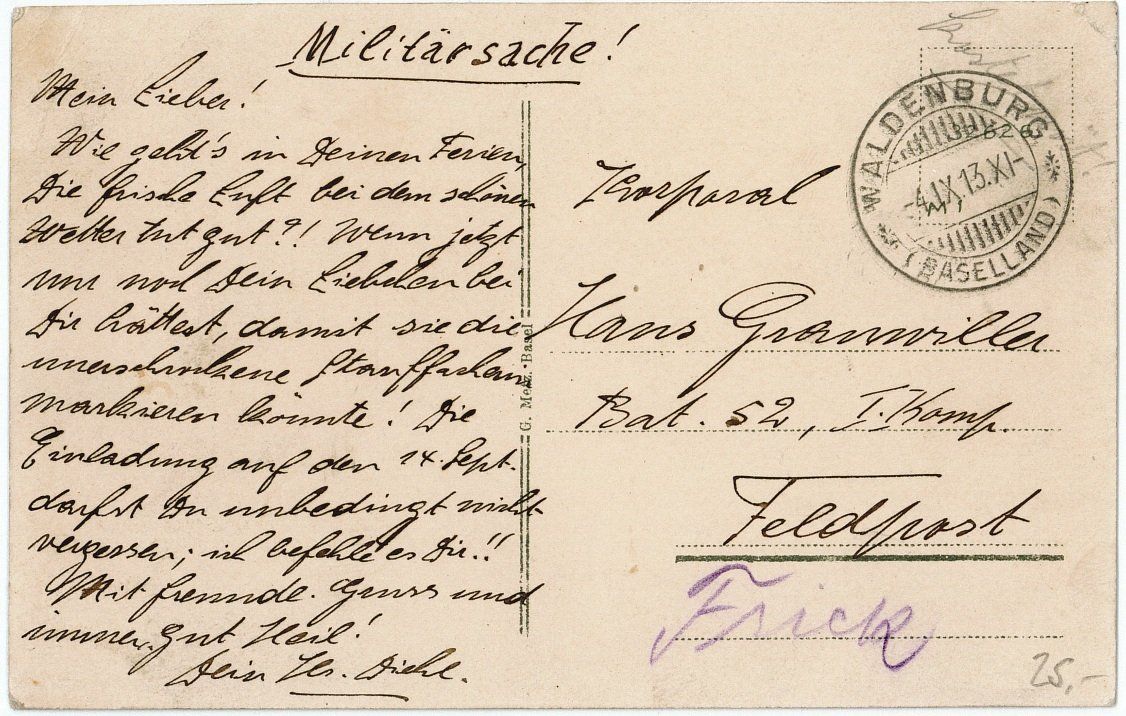 Militärsache!
Mein Lieber!
Wie geht's in Deinen Ferien,
Die frische Luft bei dem schönen
Wetter tut gut?! Wenn jetzt
nur noch Dein Liebchen bei
Dir hättest, damit sie die
unerschrockene Stauffacherin
markieren könnte! Die
Einladung auf den 14. Sept.
darfst Du unbedingt nicht
vergessen; ich befehle es Dir!!
Mit freundl. Gruss und
immer gut Heil!
Dein Hs. Diehl.
G. Metz, Basel
WALDENBURG
32626
-4.IX.13.XI-
(BASELLAND)
Korporal
Hans Granwiller
Bat. 52, I. Komp.
Feldpost
Frick
25.-